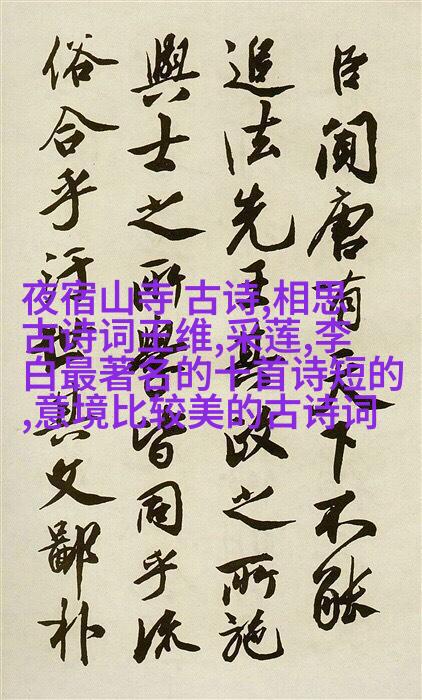 夜宿山寺 古诗,相思
古诗词王维,采莲,李
白最著名的十首诗短的
,意境比较美的古诗词
臣聞唐有天下不能
追法先王政之所施
與士之所皆同乎流
俗合乎世其文鄙朴